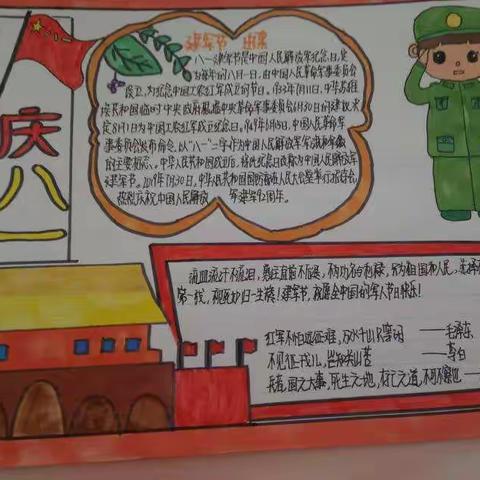 八一
庆
八
一
建军节 由来
八一建军节是中国人民解放军纪念日,定
为每年的八月一日,由中国人民革命军事委员会
设立,为纪念中国工农红军成立的节日。1933年7月11日,中华苏维
埃共和国临时中央政府根据中央革命军事委员会6月30日的建议决
定8月1日为中国工农红军成立纪念日。1949年6月15日,中国人民革命军
事委员会发布命令,以"八一"二字作为中国人民解放军军旗和军徽
的主要标志。中华人民共和国成立后,将此纪念日改称为中国人民解放军
建军节。2019年7月30日,中华人民共和国国防部在人民大会堂举行招待会,
热烈庆祝中国人民解放军建军92周年。
流血流汗不流泪,勇往直前不后退,不为功名和利禄,只为祖国和人民,
第一线,视死如归一生硬!建军节,祝愿全中国的军人节日快乐!
红军不怕远征难,万水千山只等闲 ——毛泽东
不见征戍儿,岂知关山苦 ——李白
兵者,国之大事,死生之地,存亡之道,不可不察也 ——